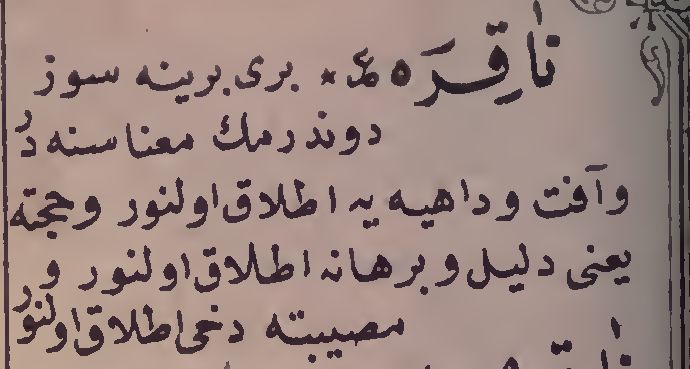 نَاقِرَه ع * بری برینه سوز
دوندرمك معناسنه در
وآفت وداهیه یه اطلاق اولنور وحجته
یعنی دلیل وبرهانه اطلاق اولنور و
مصیبته دخی اطلاق اولنور